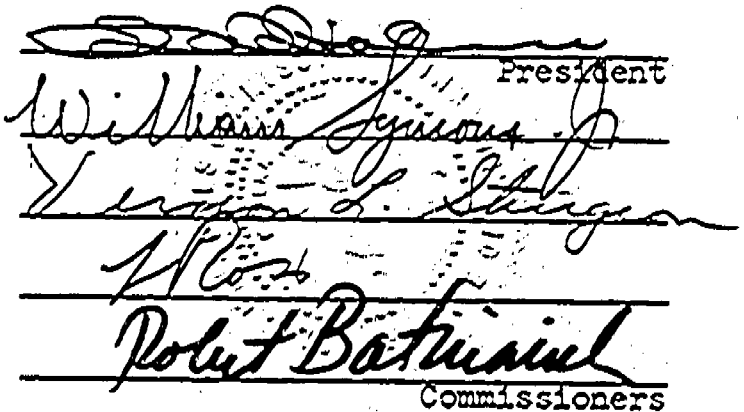 President
William Symons Jr
Vernon L. Sturgeon
J Ross
Robert Batinovich
Commissioners